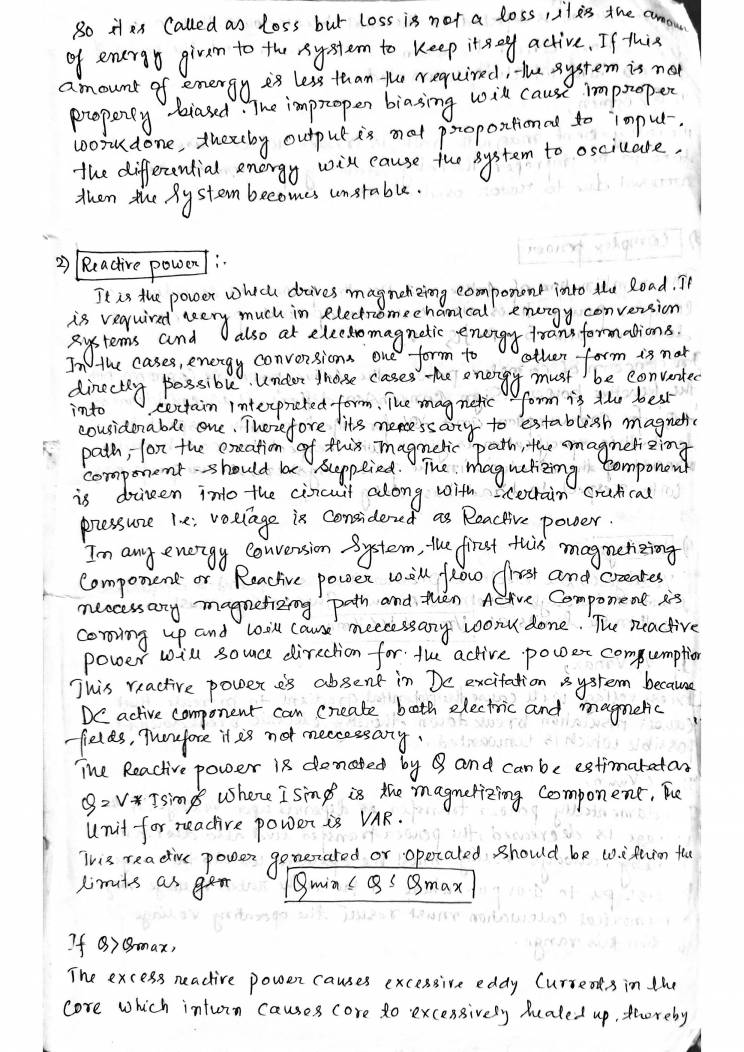 So it is Called as loss but loss is not a loss, it is the amoun
of energy given to the system to keep itself active. If this
amount of energy is less than the required, the system is not
properly biased. The improper biasing will cause improper
workdone, thereby output is not proportional to input.
the differential energy will cause the system to oscillate,
then the system becomes unstable.
2) Reactive power :-
It is the power which drives magnetizing component into the load. It
is required very much in Electromechanical energy conversion
systems and also at electromagnetic energy transformations.
In the cases, energy conversions one form to other form is not
directly possible. Under those cases the energy must be converted
into certain interpreted form. The magnetic form is the best
considerable one. Therefore its necessary to establish magnetic
path, for the creation of this magnetic path, the magnetizing
component should be supplied. The magnetizing component
is driven into the circuit along with certain critical
pressure i.e; voltage is considered as Reactive power.
In any energy conversion system, the first this magnetizing
Component or Reactive power will flow first and creates
neccessary magnetizing path and then Active Component is
coming up and will cause neccessary workdone. The reactive
power will source direction for the active power comsumption
This reactive power is absent in Dc excitation system because
DC active component can create both electric and magnetic
fields, Therefore it is not neccessary.
The Reactive power is denoted by Q and can be estimated as
Q = V * I sin φ where I Sin φ is the magnetizing component. The
Unit for reactive power is VAR.
This reactive power generated or operated should be within the
limits as Qmin ≤ Q ≤ Qmax
If Q > Qmax,
The excess reactive power causes excessive eddy Currents in the
core which inturn causes core to excessively heated up, thereby